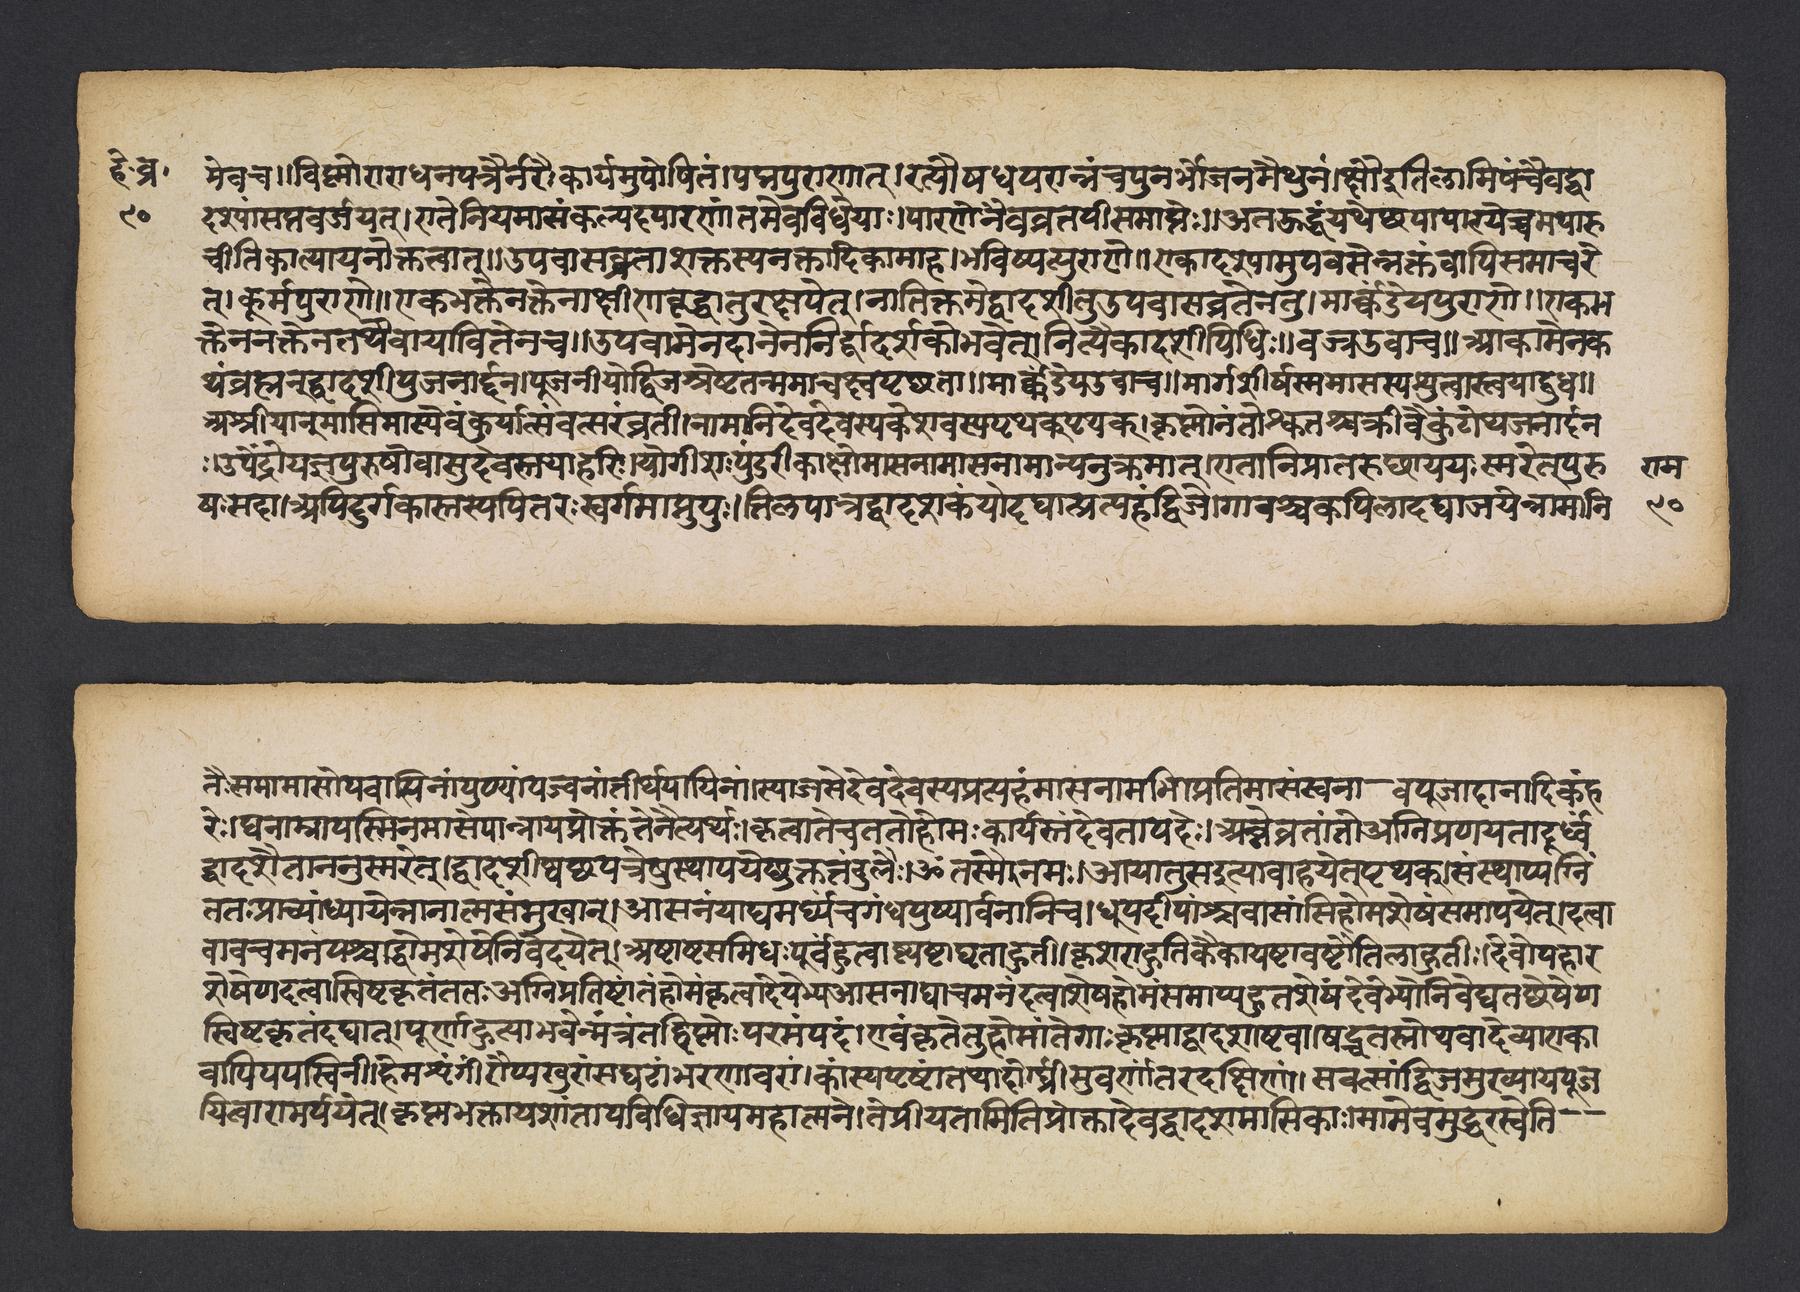 हे.व्र.
९०
मेवच॥विष्णोराराधनपन्नैर्नरैःकार्यमुपोषितं।पद्मपुराणात्।रत्यौषधपरान्नंचपुनर्भोजनमैथुनं।क्षौद्रतिलामिषंचैवद्वा
दश्यांसप्तवर्जयेत्।एतेनियमासंकल्पदृपारणांतमेवविधेयाः।पारणेनैवव्रतपीसमाप्तेः॥अतऊर्द्ध्वंयथेष्ठपापारयेच्चमथारु
चीतिकात्यायनोक्तत्वात्॥उपवासव्रताशक्तस्यनक्तादिकामाह।भविष्यत्पुराणे॥एकादश्यामुपवसेन्नक्तंवापिसमाचरे
त्।कूर्मपुराणे॥एकभक्तेनक्तेनाक्षीणवृद्धातुरक्षेपेत्।नातिक्रमेद्वादशीतुउपवासव्रतेनतु।मार्कंडेयपुराणे॥एकभ
क्तेननक्तेनतथैवायाचितेनच॥उपवासेनदानेननिर्द्वादशिकोभवेत्।नित्यैकादशीविधिः॥वज्रउवाच॥अकामेनक
थंब्रह्मन्द्वादशीपुजनार्द्दन।पूजनीयोद्विजश्रेष्टतन्ममाचक्ष्वपृछता॥मार्कंडेयउवाच॥मार्गशीर्षस्यमासस्यश्रुत्वास्त्वयादुध॥
अश्नीयानुमासिमास्येवंकुर्यात्संवत्सरंव्रती।नामानिदेवदेवस्यकेशवस्यपृथक्पृथक्।कृष्णोनंतोश्चितश्चक्रीवैकुंठोथजनार्दन
ः।उपेंद्रोयज्ञपुरुषोवासुदेवस्तथाहरिः।योगीशःपुंडरीकाक्षोमासनामासनामान्यनुक्रमात्।एतानिप्रातरुछाययःस्मरेतपुरु
षःसदा।अपिदुर्गकास्तस्यपितरःस्वर्गमाप्नुयुः।तिलपात्रद्वादशकंयोदद्यात्प्रत्यहंद्विजे।गावश्चकपिलादद्याजयेन्नामानि
राम
९०
नैःसमामासोपवासिनांपुण्यांयज्वनांतीर्थयायिनां।स्याजसेदेवदेवस्यप्रत्यहंमासनामभिःप्रतिमासंस्वना-वपूजादानादिकंह
रेः।घनाम्नापस्मिन्मासेपात्रायप्रोक्तंतेनैत्यर्थः।कृत्वातेचततोहोमःकार्यस्तंदेवतापदैः।अच्चैव्रतांतोअग्निप्रणयतादूर्ध्वं
द्वादशैताननुस्मरेत्।द्वादशीष्वष्ठपत्रेषुस्थापयेछुक्लतंडुलैः।ॐतस्मैनमः।आयातुसदुत्यावाहयेत्पृथक्।संस्थाप्यग्निं
ततःप्राच्यांध्यायेन्नानात्मसंमुखान्।आसनंयाद्यमर्घ्यंचगंधपुष्पार्चनानिच।धूपदीपांश्चवासांसिहोमशेषंसमापयेत्।दत्वा
वाचचमनंपश्चाद्धोमशेषंनिवेदयेत्।अष्टाष्टसमिधःपूर्वंहुत्वाष्टष्टाघृताहुती।कृशराहुतिकैकायष्टावष्टोतिलाहुतीः।देवोपहार
शेषेणदत्वास्विष्टकृतंततःअग्निप्रतिष्टांतंहोमंकृत्वादेयेभ्यआसनाद्याचमनंदत्वाशेषहोमंसमाप्यहुतशेषंदेवेभ्योनिवेद्यतछेषेण
स्विष्टकृतंदद्यात्।पूर्णाहुत्याभवेन्मंत्रंतद्विष्णोःपरमंपदं।एवंकृतेतुहोमांतेगाःकृष्णाद्वादशाष्टवा।षट्चतस्रोथवादेव्याएका
वापिपयस्विनी।हेमशृंगींरौप्यखुरांसघंटांभरणावरां।कांस्यपृष्टांतथादोग्ध्रींसुवर्णांतरदक्षिणां।सवत्सांद्विजमुख्यायपूज
यित्वारामर्पयेत्।कृष्णभक्तायशांतायविधिज्ञायमहात्मने।तेप्रीयतामितिप्रोक्तादेवद्वादशमासिकाः।मामेवमुद्धरस्वेति--